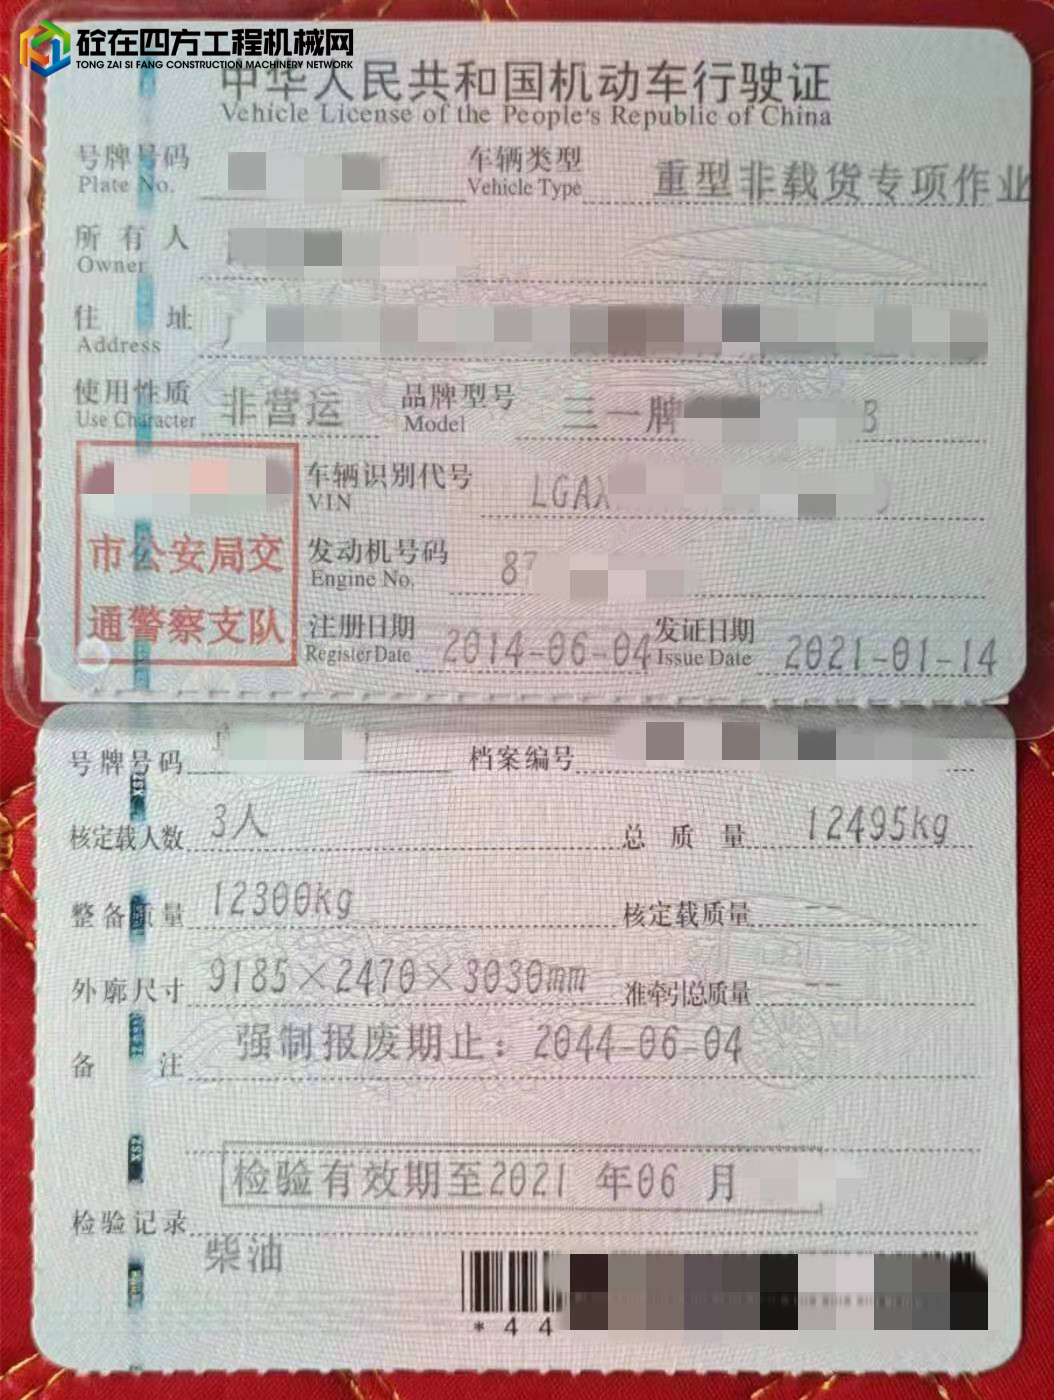 砼在四方工程机械网
TONG ZAI SI FANG CONSTRUCTION MACHINERY NETWORK
中华人民共和国机动车行驶证
Vehicle License of the People's Republic of China
号牌号码
Plate No.
车辆类型
Vehicle Type
重型非载货专项作业
所有人
Owner
住址
Address
使用性质
Use Character
非营运
品牌型号
Model
三一牌
B
市公安局交
通警察支队
车辆识别代号
VIN
LGAX
发动机号码
Engine No.
87
注册日期
Register Date
2014-06-04
发证日期
Issue Date
2021-01-14
号牌号码
档案编号
核定载人数
3人
总质量
12495kg
整备质量
12300kg
核定载质量
--
外廓尺寸
9185×2470×3030mm
准牵引总质量
--
备注
强制报废期止：2044-06-04
检验有效期至2021 年06 月
检验记录
柴油
*44